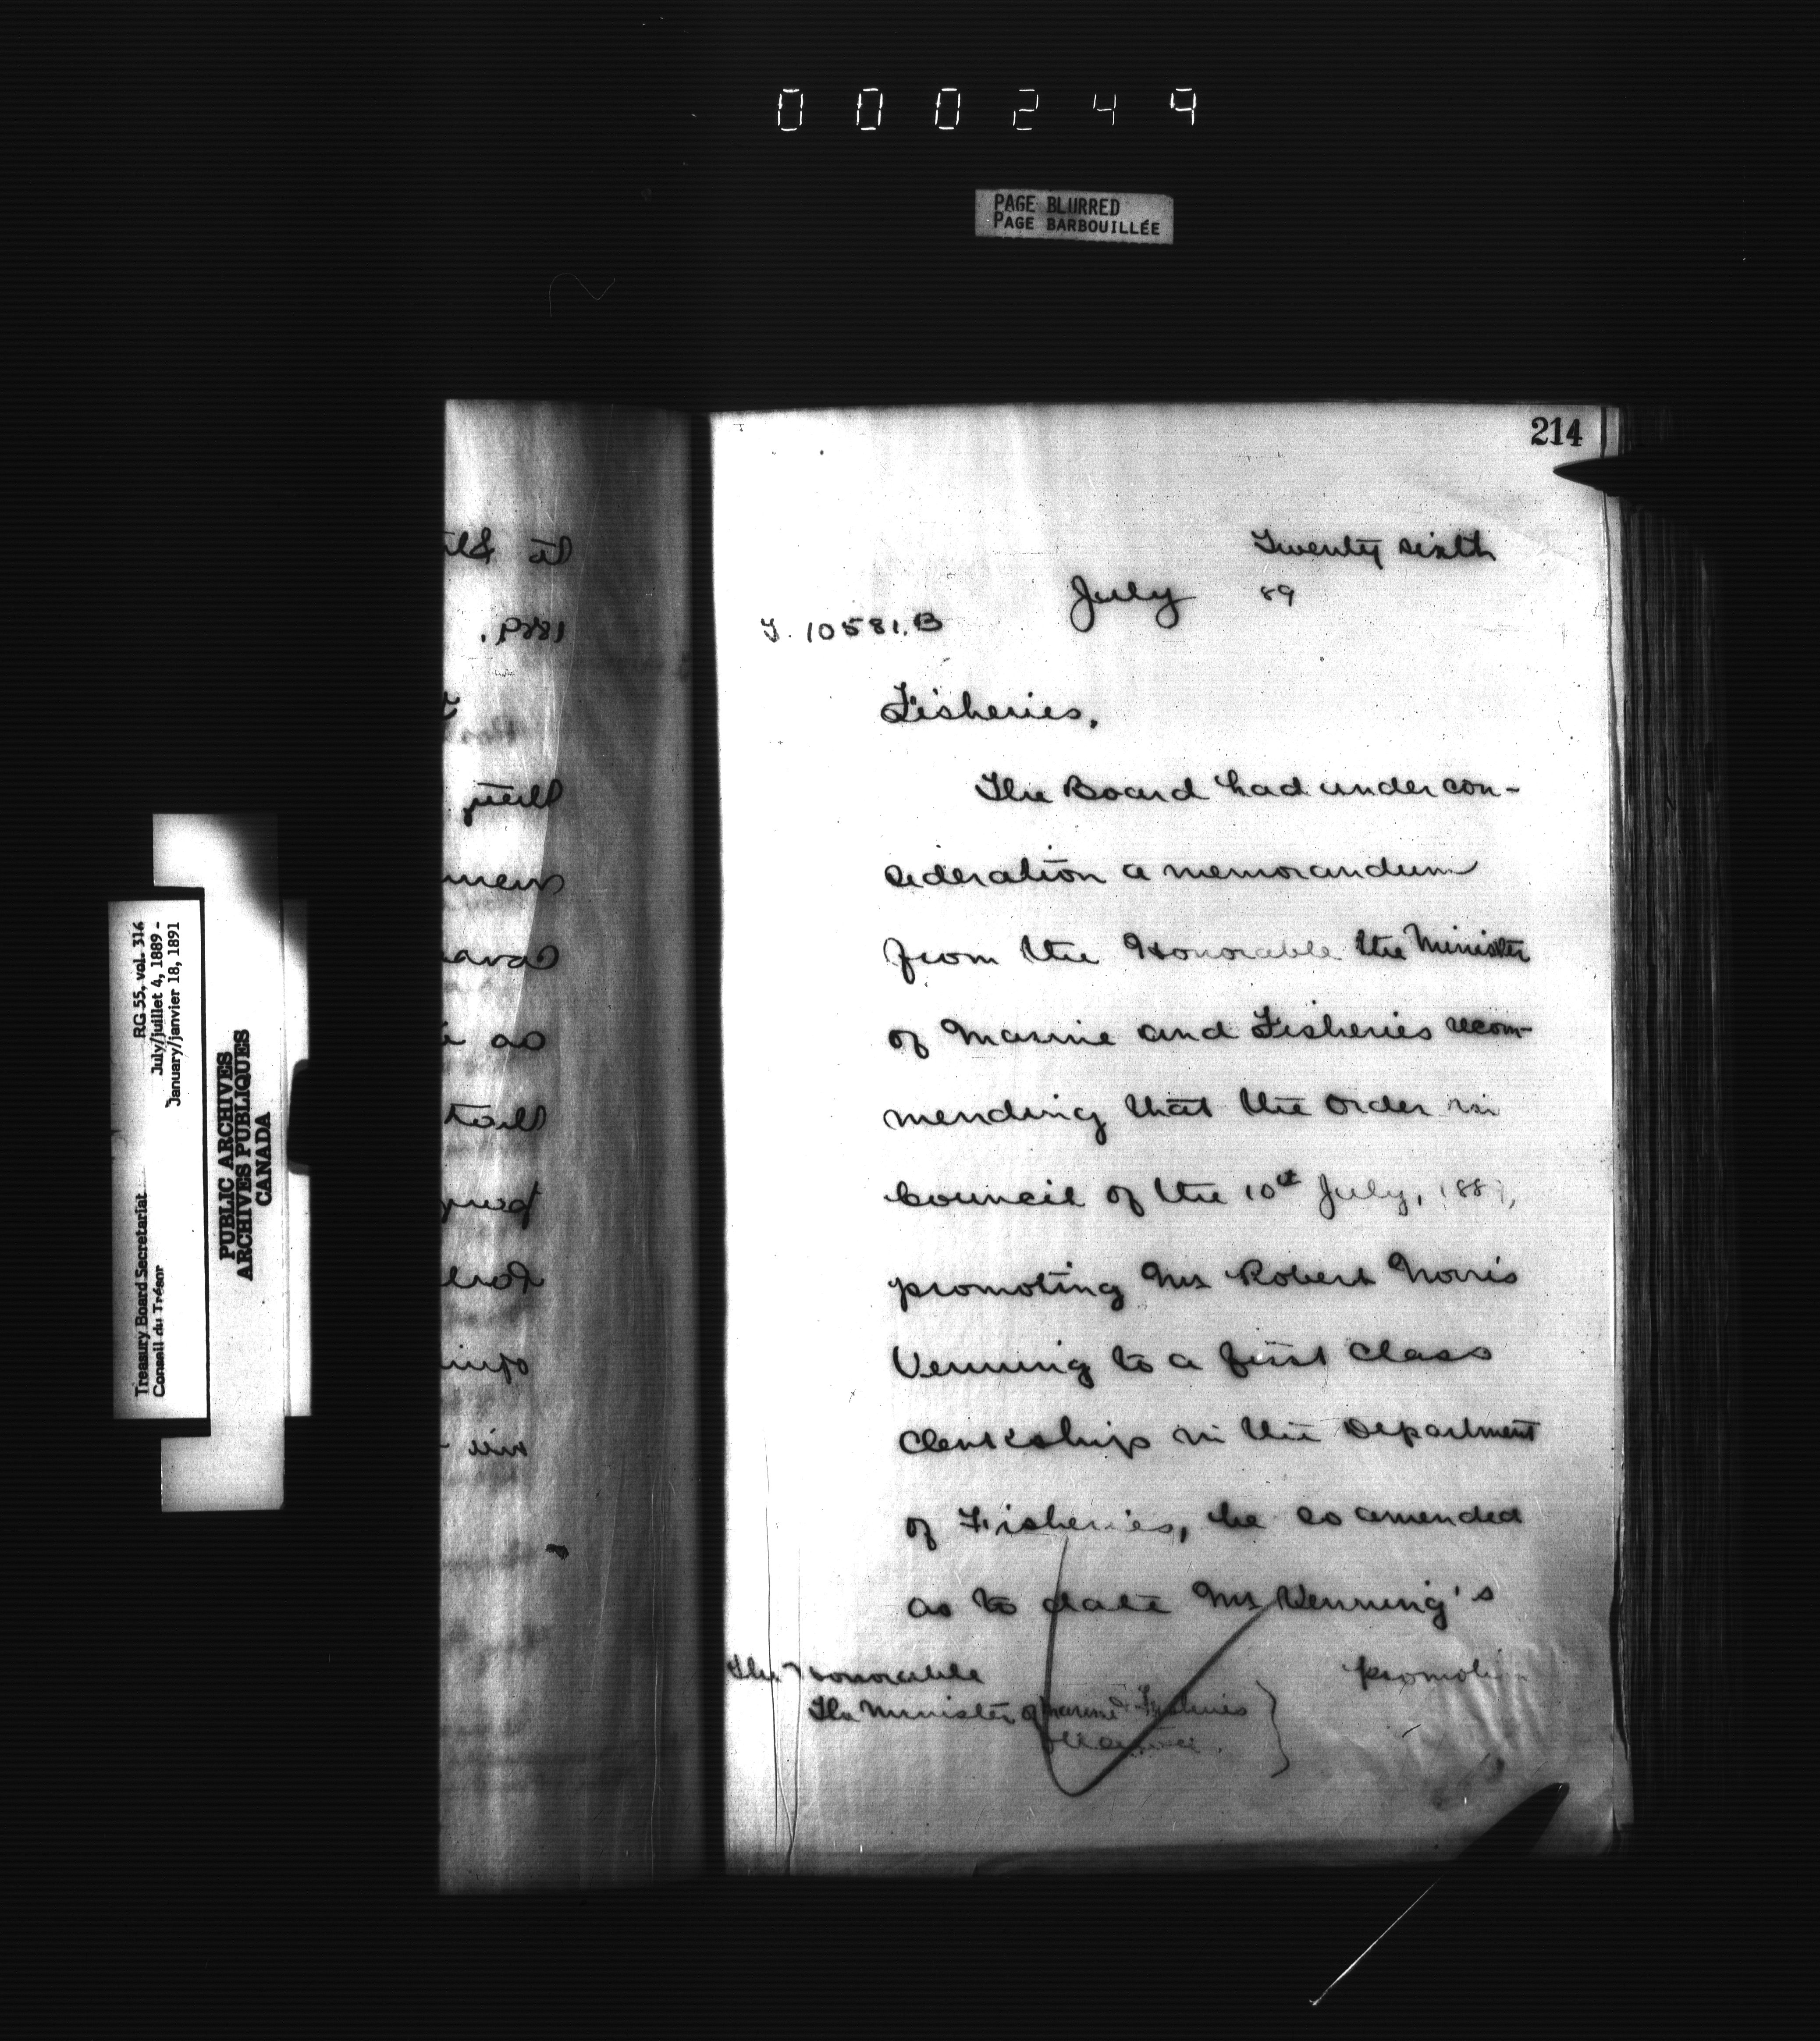 000249
PAGE BLURRED
PAGE BARBOUILLÉE
214
Twenty sixth
July 89
T. 10581.B
Fisheries.
The Board had under con-
sideration a memorandum
from the Honorable the Minister
of Marine and Fisheries recom-
mending that the Order in
Council of the 10th July, 1889,
promoting Mr Robert Norris
Venning to a first Class
Clerkship in the Department
of Fisheries, be so amended
as to date Mr Venning's
promotion
The Honorable
The Minister of Marine & Fisheries
Treasury Board Secretariat RG 55, vol. 316
Conseil du Trésor July/juillet 4, 1889 -
January/janvier 18, 1891
PUBLIC ARCHIVES
ARCHIVES PUBLIQUES
CANADA